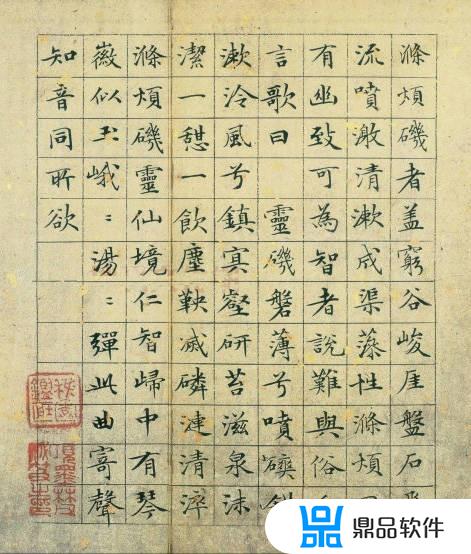 滌煩磯者盖窮谷峻崖盤石
流噴激清漱成渠藻性滌煩
有幽致可為智者說難與俗
言歌曰 靈磯磐薄兮噴
漱泠風兮鎮冥壑研苔滋泉沫
潔一憇一飲塵鞅滅磷漣清淬
滌煩磯靈仙境仁智歸中有琴
徽似玉峨〻湯〻彈此曲寄聲
知音同所欲
鼎品软件